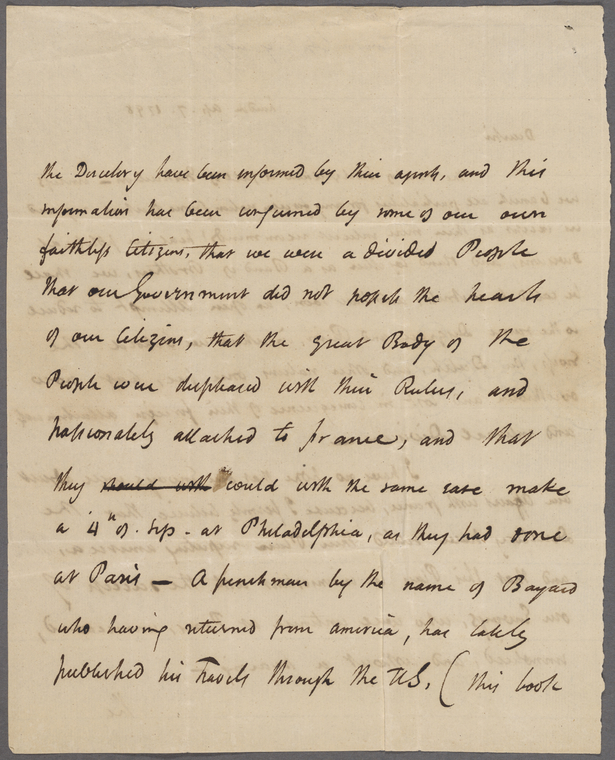 the Directory have been informed by their agents, and this
information has been confirmed by some of our own
faithless Citizens, that we were a divided People
that our Government did not possess the hearts
of our Citizens, that the great Body of the
People were displeased with their Rulers, and
passionately attached to france, and that
they could with the same ease make
a 4th of. Sep - at Philadelphia, as they had done
at Paris — A frenchman by the name of Bayard
who having returned from america, has lately
published his Travels through the US. (this book